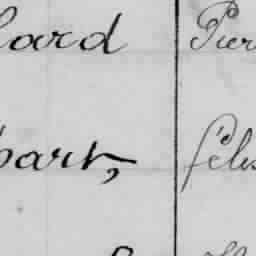 lard Pier
bart, félis